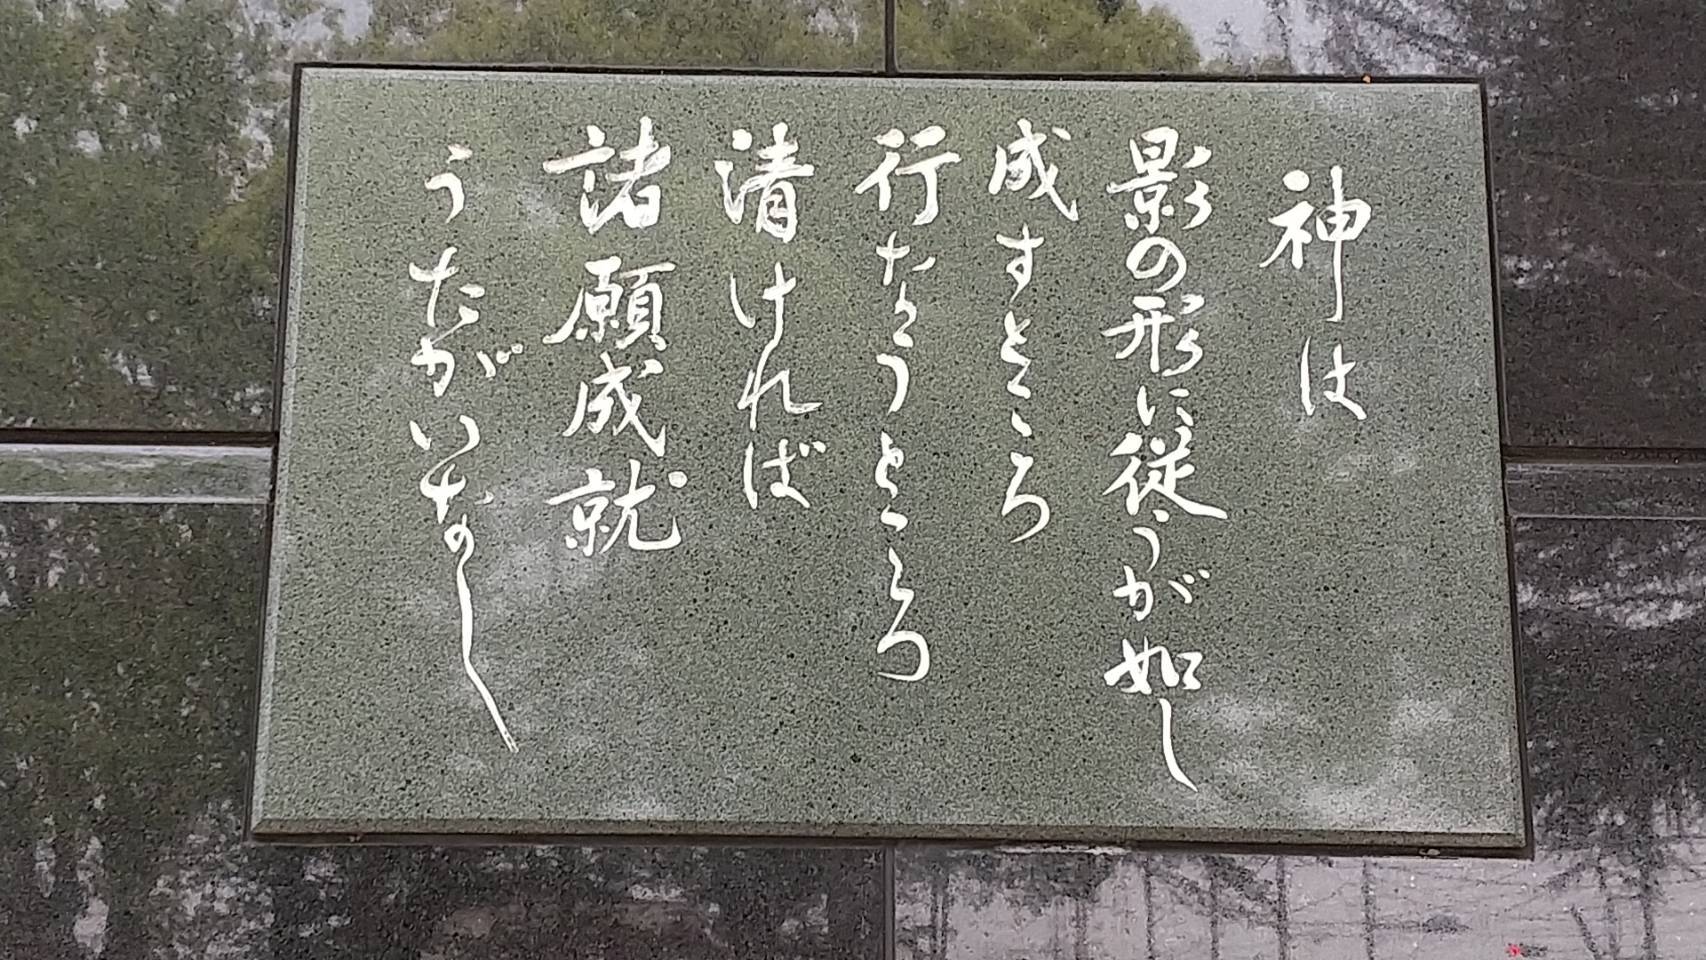 神は
影の形に従うが如し
成すところ
行なうところ
清ければ
諸願成就
うたがいなし